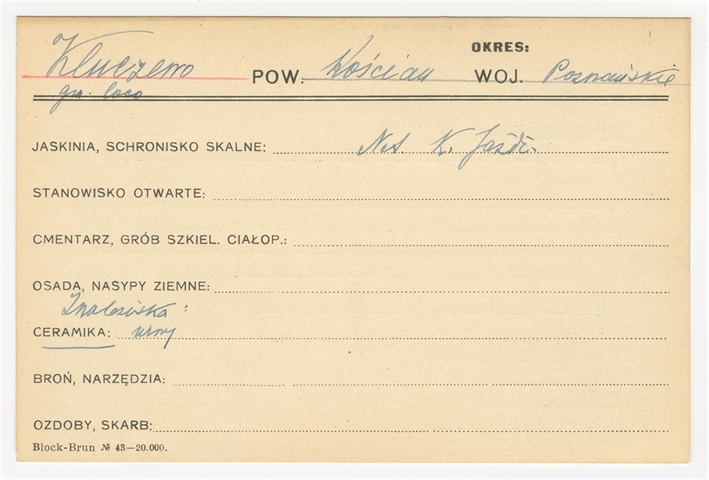 OKRES:
Kluczewo POW. Kościan WOJ. Poznańskie
gm. loco
JASKINIA, SCHRONISKO SKALNE: Not. K. Jażdż.
STANOWISKO OTWARTE:
CMENTARZ, GRÓB SZKIEL. CIAŁOP.:
OSADA, NASYPY ZIEMNE:
Znaleziska:
CERAMIKA: urny
BROŃ, NARZĘDZIA:
OZDOBY, SKARB:
Block-Brun № 43—20.000.